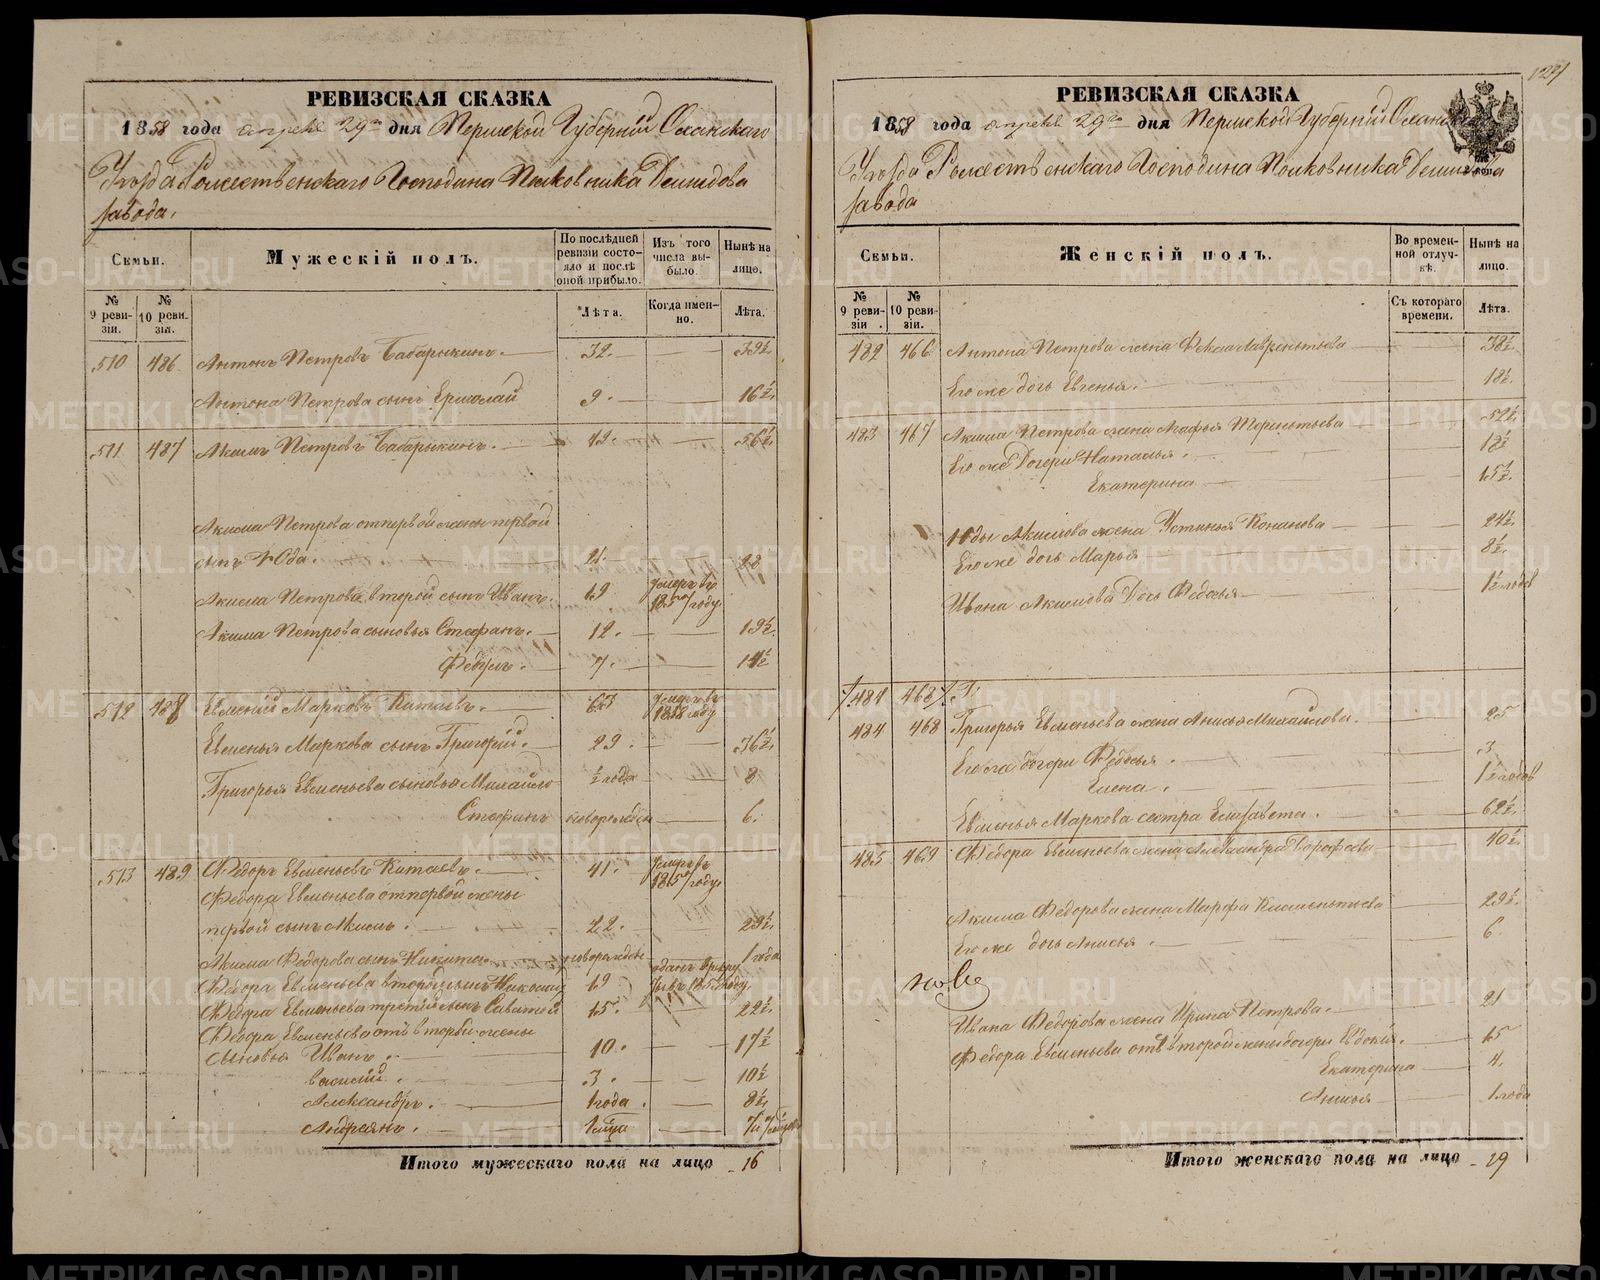 РЕВИЗСКАЯ СКАЗКА
1858 года апреля 29го дня Пермской Губернiи Оханскаго
Уезда Рожественскаго Господина Полковника Демидова
завода.
Семьи.
Мужескiй полъ.
По послѣдней ревизiи состояло и послѣ оной прибыло.
Изъ того числа выбыло.
Нынѣ на лицо.
№ 9 ревизiи.
№ 10 ревизiи.
Лѣта.
Когда именно.
Лѣта.
510 486 Антонъ Петровъ Бабарыкинъ. 32. 39½
Антона Петрова сынъ Ермолай 9. 16½
511 487 Акимъ Петровъ Бабарыкинъ. 56½
Акима Петрова от первой жены первой
сынъ Iода. 21. 28
Акима Петрова второй сынъ Иванъ. 19 умеръ въ 1857 году.
Акима Петрова сыновья Стефанъ. 12. 19½
Федулъ. 7. 14½
512 488 Евменiй Марковъ Китаевъ. 63 умеръ въ 1858 году
Евменья Маркова сынъ Григорiй. 29. 36½
Григорья Евменьева сыновья Михайло ½ года 8
Стефанъ новорожден 6.
513 489 Федоръ Евменьевъ Китаевъ. 41. умеръ въ 1857 году.
Федора Евменьева от первой жены
первой сынъ Акимъ. 22. 29½
Акима Федорова сынъ Никита. новорожден 1 года
Федора Евменьева второй сынъ 19
Федора Евменьева третiй сынъ Саватей 15. 22½
Федора Евменьева отъ второй жены
сыновья Иванъ. 10. 17½
Василiй. 3. 10½
Александръ. 1 года. 8½
Андреянъ.
Итого мужескаго пола на лицо 16
РЕВИЗСКАЯ СКАЗКА
1858 года апреля 29го дня Пермской Губернiи Оханскаго
Уезда Рожественскаго Господина Полковника Демидова
завода
Семьи.
Женскiй полъ.
Во временной отлучкѣ.
Нынѣ на лицо.
№ 9 ревизiи.
№ 10 ревизiи.
Съ котораго времени.
Лѣта.
482 466 Антона Петрова жена Фекла Лаврентьева 38½
Его же дочь Евгенья. 18½.
483 467 Акима Петрова жена Агафья Терентьева 52½
Его же Дочери Наталья. 18½
Екатерина 15½.
Iоды Акимова жена Устинья Кононова 24½
Его же дочь Марья 8½.
Ивана Акимова Дочь Федосья 1½ годов
484 468
484 468 Григорья Евменьева жена Анисья Михайлова. 25
Его же дочери Федосья. 3
Елена. 1½ годов
Евменья Маркова сестра Елизавета. 62½
485 469 Федора Евменьева жена Александра Дорофеева 40½
Акима Федорова жена Марфа Климентьева 29½.
Его же дочь Анисья. 6
Ивана Федорова жена Ирина Петрова. 21
Федора Евменьева отъ второй жены дочери Евдокия. 15
Екатерина 4.
Анисья 1 года
Итого женскаго пола на лицо 19
METRIKI.GASO-URAL.RU